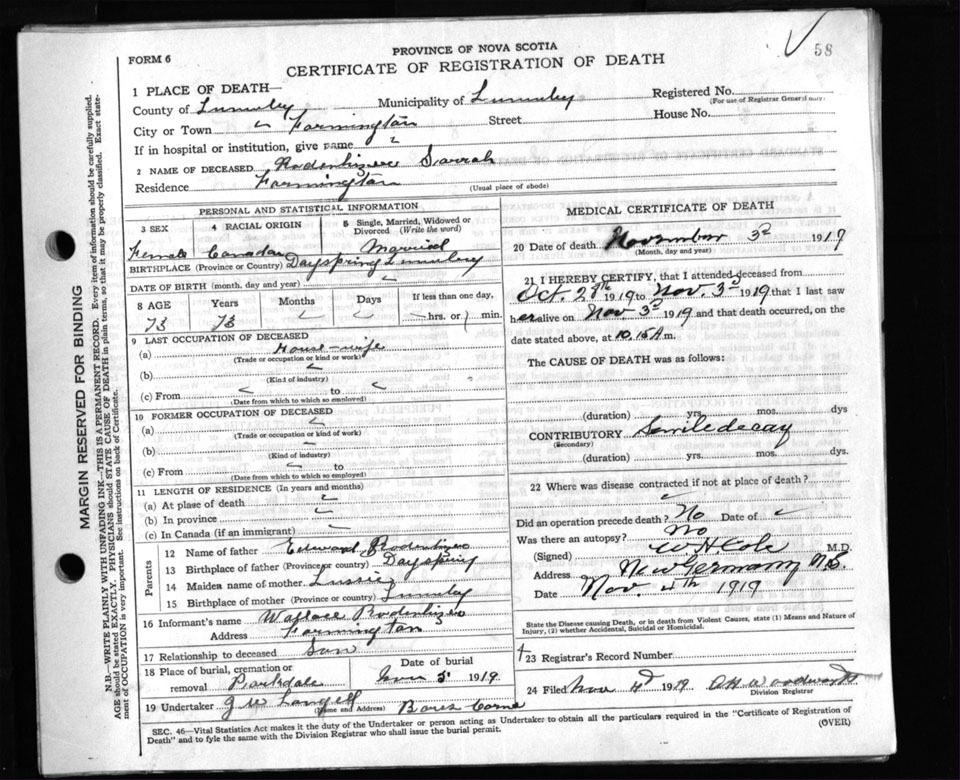 58
PROVINCE OF NOVA SCOTIA
FORM 6
CERTIFICATE OF REGISTRATION OF DEATH
1 PLACE OF DEATH—
County of Lunenburg Municipality of Lunenburg Registered No.
(For use of Registrar General only)
City or Town Farmington Street House No.
If in hospital or institution, give name
2 NAME OF DECEASED Rodenhizer Sarrah
Residence Farmington
(Usual place of abode)
PERSONAL AND STATISTICAL INFORMATION
3 SEX 4 RACIAL ORIGIN 5 Single, Married, Widowed or Divorced (Write the word)
Female Canadian Married
BIRTHPLACE (Province or Country) Dayspring
DATE OF BIRTH (month, day and year)
8 AGE Years Months Days If less than one day,
73 73 hrs. or min.
9 LAST OCCUPATION OF DECEASED
(a) House-wife
(Trade or occupation or kind or work)
(b)
(Kind of industry)
(c) From to
(Date from which to which so employed)
10 FORMER OCCUPATION OF DECEASED
(a)
(Trade or occupation or kind of work)
(b)
(Kind of industry)
(c) From to
(Date from which to which so employed)
11 LENGTH OF RESIDENCE (In years and months)
(a) At place of death
(b) In province
(c) In Canada (if an immigrant)
Parents
12 Name of father Edward Rodenhizer
13 Birthplace of father (Province or country) Dayspring
14 Maiden name of mother
15 Birthplace of mother (Province or country)
16 Informant's name Wallace Rodenhizer
Address Farmington
17 Relationship to deceased Son
18 Place of burial, cremation or removal Parkdale Date of burial Nov 5 1919
19 Undertaker
(Name and Address)
MEDICAL CERTIFICATE OF DEATH
20 Date of death November 3d 1917
(Month, day and year)
21 I HEREBY CERTIFY, that I attended deceased from
Oct. 28th 1919 to Nov. 3d 1919 that I last saw
her alive on Nov 3d 1919 and that death occurred, on the
date stated above, at 10.15 A m.
The CAUSE OF DEATH was as follows:
(duration) yrs. mos. dys
CONTRIBUTORY Senile decay
(Secondary)
(duration) yrs. mos. dys.
22 Where was disease contracted if not at place of death?
Did an operation precede death? No Date of
Was there an autopsy? No
(Signed) W H Cole M.D.
Address New Germany N.S.
Nov. 4th 1919
State the Disease causing Death, or in death from Violent Causes, state (1) Means and Nature of
Injury, (2) whether Accidental, Suicidal or Homicidal.
23 Registrar's Record Number
24 Filed Nov 4 1919
Division Registrar
SEC. 46—Vital Statistics Act makes it the duty of the Undertaker or person acting as Undertaker to obtain all the particulars required in the "Certificate of Registration of
Death" and to fyle the same with the Division Registrar who shall issue the burial permit.
(OVER)
MARGIN RESERVED FOR BINDING
N.B.—WRITE PLAINLY WITH UNFADING INK—THIS IS A PERMANENT RECORD. Every item of information should be carefully supplied.
AGE should be stated EXACTLY. PHYSICIANS should STATE CAUSE OF DEATH in plain terms, so that it may be properly classified. Exact statement
of OCCUPATION is very important. See instructions on back of Certificate.